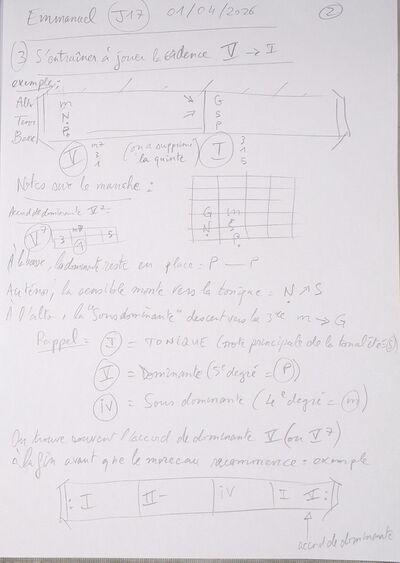 Emmanuel J17 01/04/2026 2
3 S'entraîner à jouer la cadence V → I
exemple:
Alto m G
Tenor N S
Basse P P
V m7 3 1 (on a supprimé la quinte) I 3 1 5
Notes sur le manche:
Accord de dominante V7
V7 3 m7 1 5
G m
N S
P
À la basse, la dominante reste en place = P — P
Au ténor, la sensible monte vers la tonique = N ↗ S
À l'alto, la "Sous dominante" descend vers la 3ce m → G
Rappel = I = TONIQUE (note principale de la tonalité = S)
V = Dominante (5e degré = P)
iv = Sous dominante (4e degré = m)
On trouve souvent l'accord de dominante V (ou V7)
à la fin avant que le morceau recommence = exemple
I II- iv I V
accord de dominante